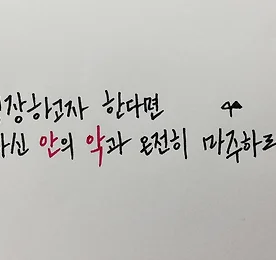 장하고자 한다면
자신 안의 악과 온전히 마주하